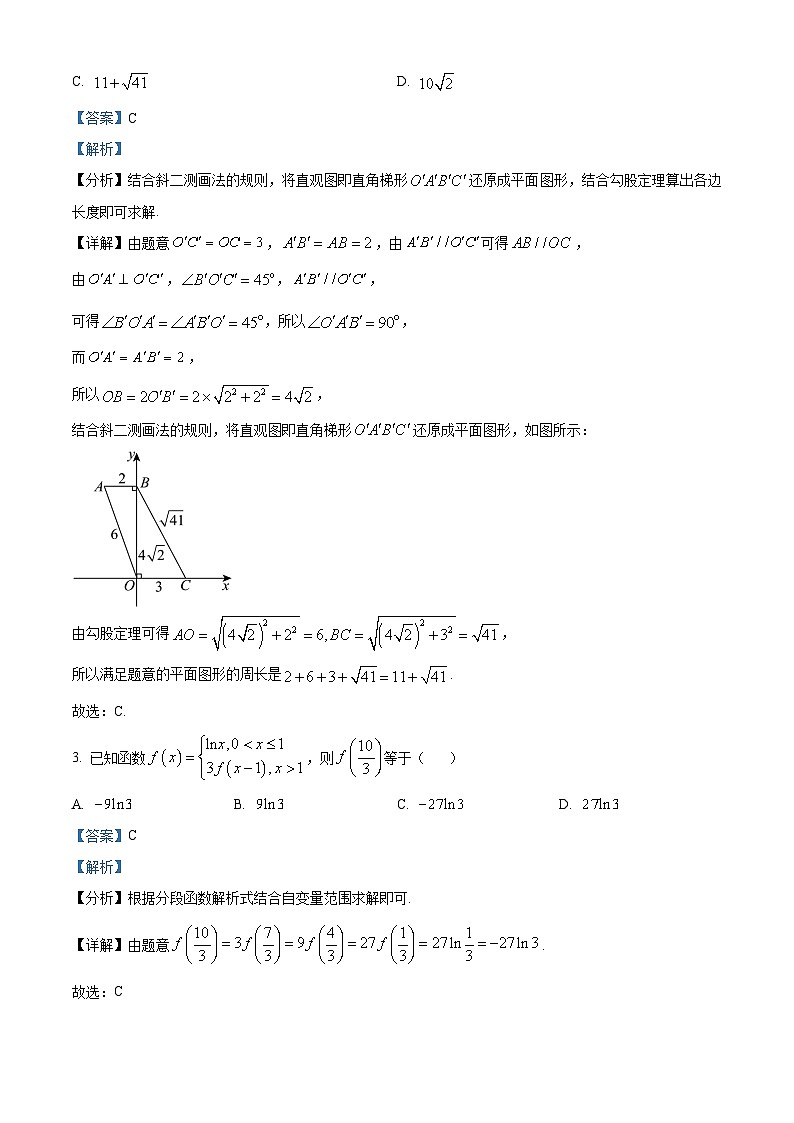 C. 11+√41 D. 10√2
【答案】C
【解析】
【分析】结合斜二测画法的规则，将直观图即直角梯形O′A′B′C′还原成平面图形，结合勾股定理算出各边
长度即可求解.
【详解】由题意O′C′=OC=3，A′B′=AB=2，由A′B′//O′C′可得AB//OC，
由O′A′⊥O′C′，∠B′O′C′=45°，A′B′//O′C′，
可得∠B′O′A′=∠A′B′O′=45°，所以∠O′A′B′=90°，
而O′A′=A′B′=2，
所以OB=2O′B′=2×√(2²+2²)=4√2，
结合斜二测画法的规则，将直观图即直角梯形O′A′B′C′还原成平面图形，如图所示：
y
A 2 B
√41
6
4√2
O 3 C x
由勾股定理可得AO=√((4√2)²+2²)=6,BC=√((4√2)²+3²)=√41，
所以满足题意的平面图形的周长是2+6+3+√41=11+√41.
故选：C.
3. 已知函数f(x)={lnx,0<x≤1
3f(x−1),x>1，则f(10/3)等于（ ）
A. −9ln3 B. 9ln3 C. −27ln3 D. 27ln3
【答案】C
【解析】
【分析】根据分段函数解析式结合自变量范围求解即可.
【详解】由题意f(10/3)=3f(7/3)=9f(4/3)=27f(1/3)=27ln1/3=−27ln3.
故选：C